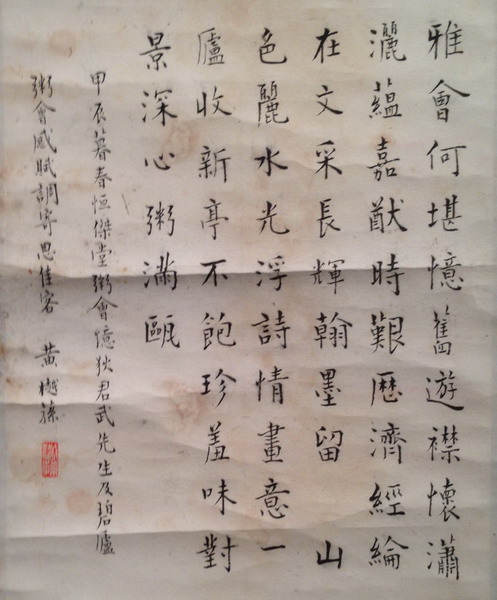 雅會何堪憶舊遊襟懷瀟
灑蘊嘉猷時艱歷濟經綸
在文采長輝翰墨留 山
色麗水光浮詩情畫意一
廬收新亭不飽珍羞味對
景深心粥滿甌
甲辰暮春恒傑堂粥會憶狄君武先生及碧廬
粥會感賦調寄思佳客 黃樾蓀